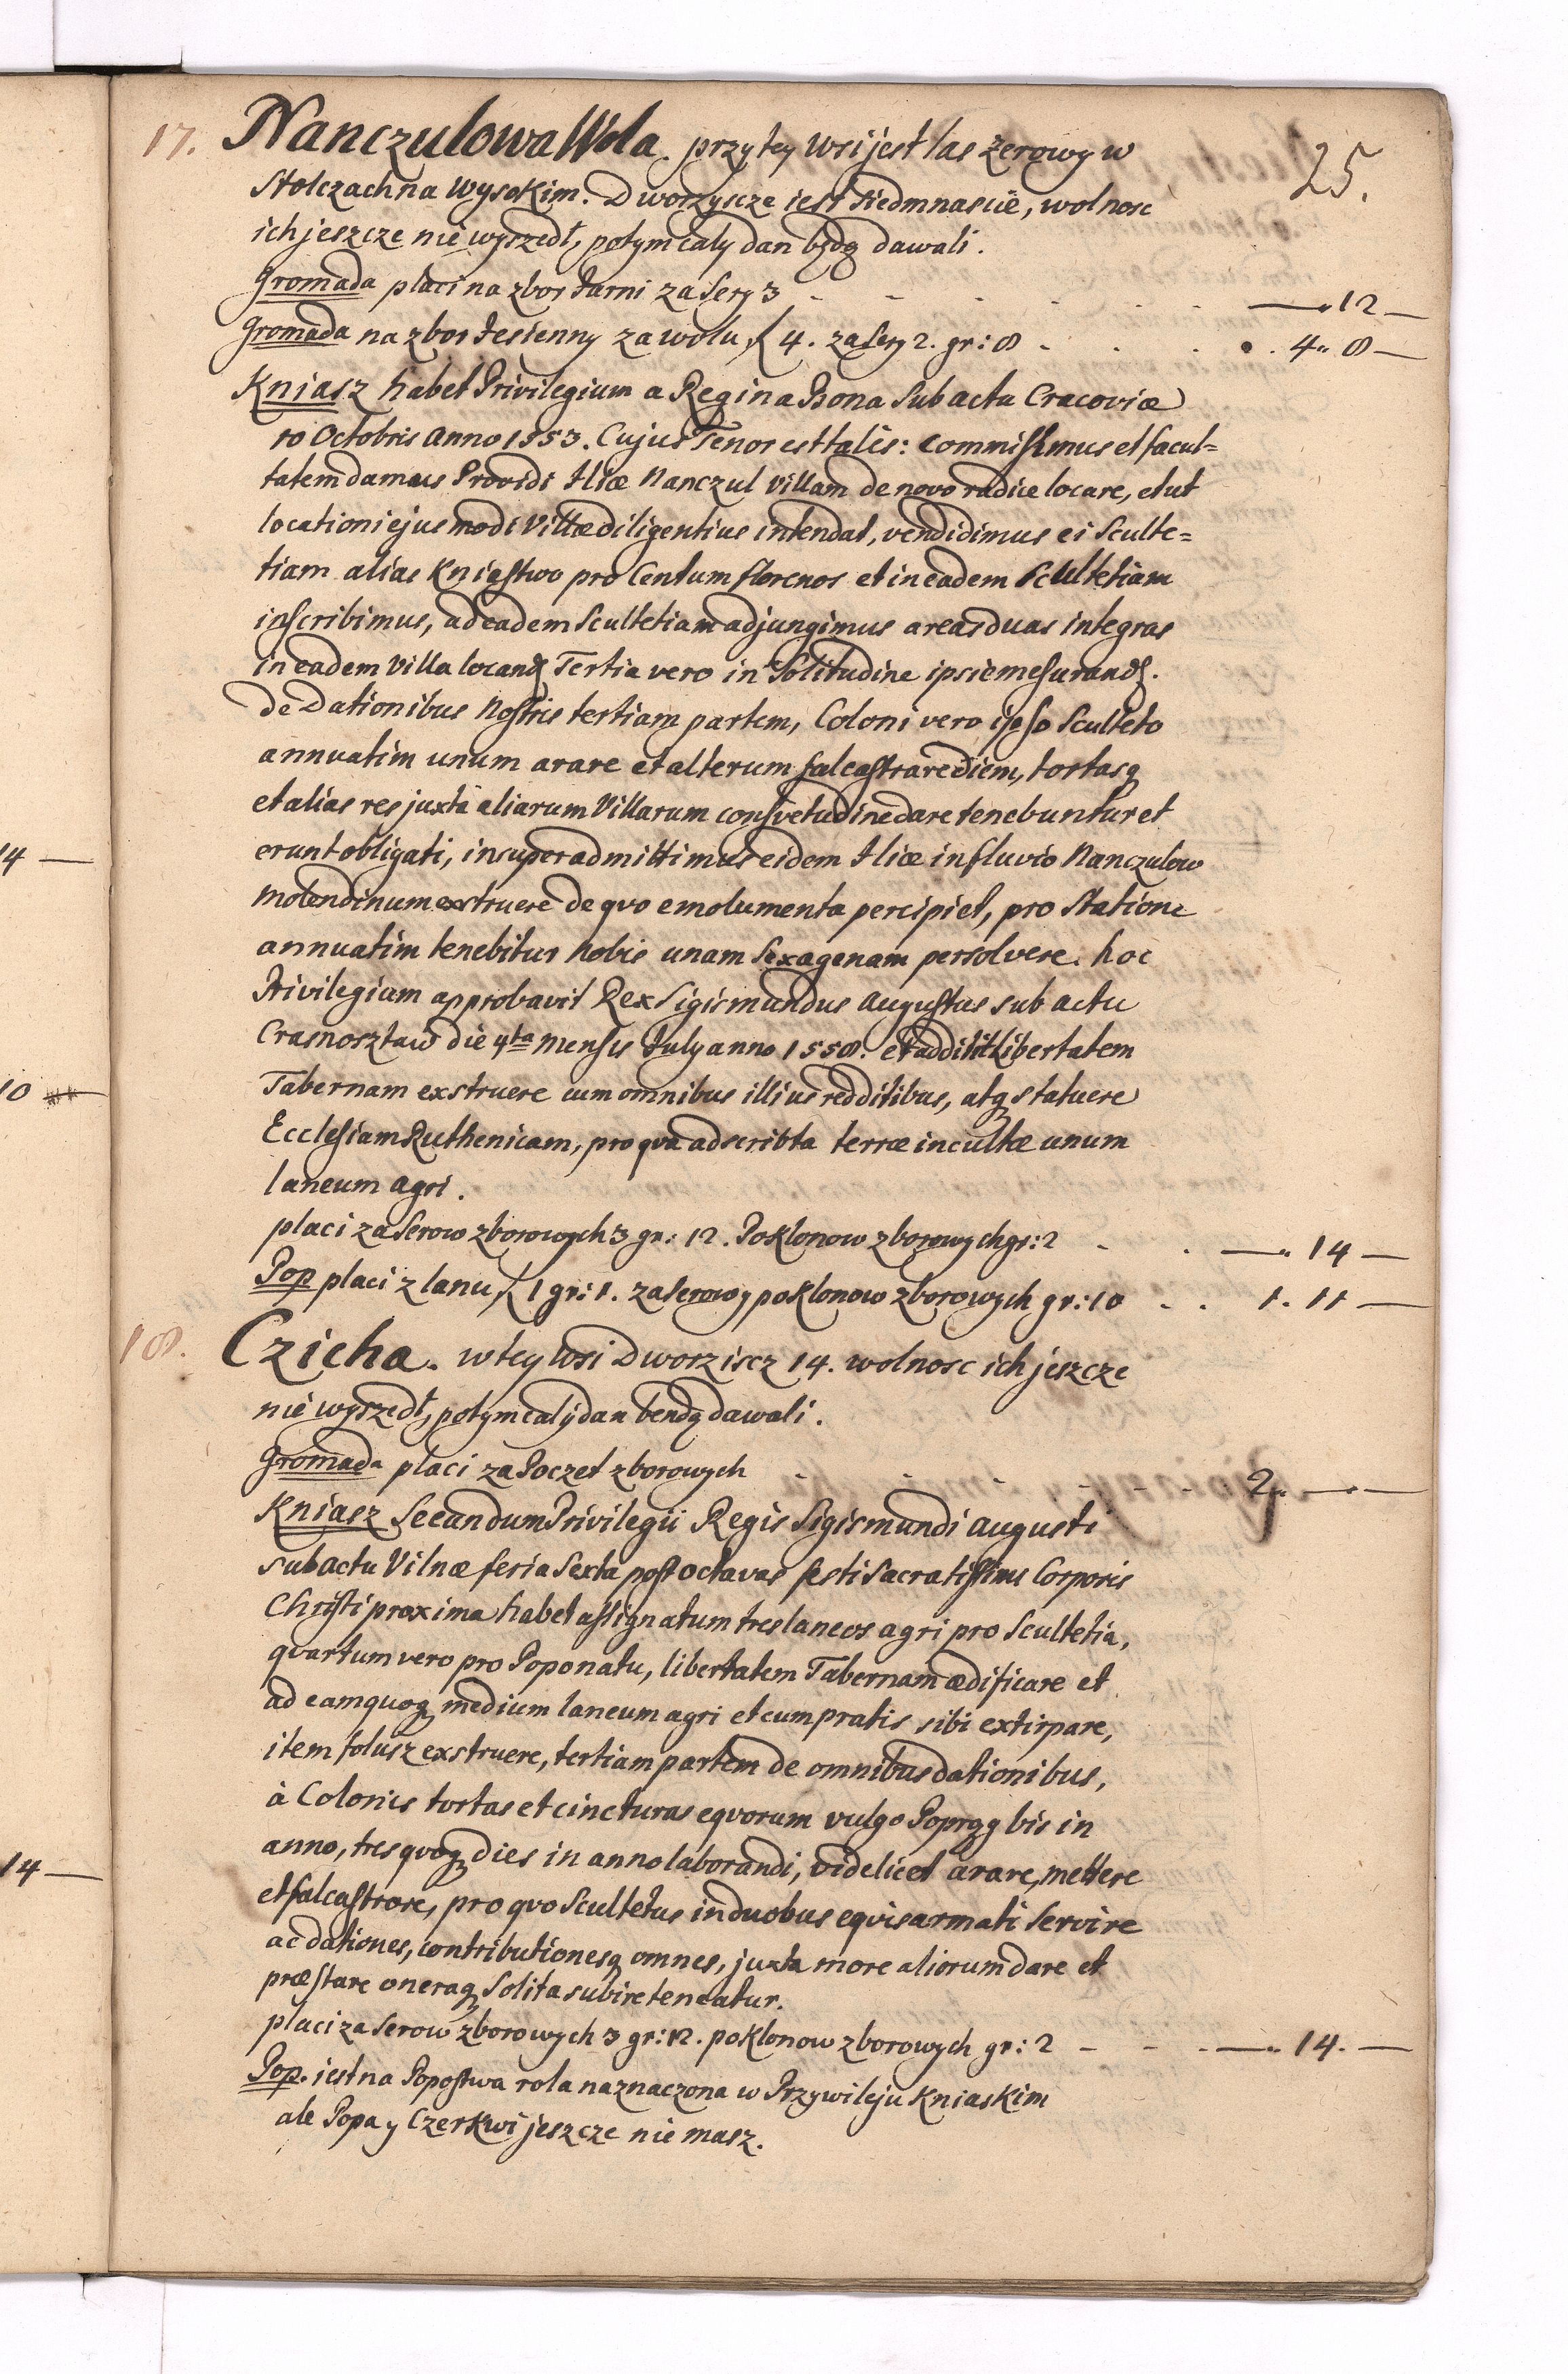 25.
17. Nanczulowa Wola. przy tey wsi jest las zerowy w
Stolczach na Wysokim. Dworzyscze iest siedmnascie, wolnosc
ich jeszcze nie wyszedł, potym cały dan będą dawali.
Gromada płaci na zbor Jarni za Sery 3 - - - - - — „ 12 —
Gromada na zbor Jesienny za wołu, f 4. za Sery 2. gr: 8 - . . . 4 „ 8 —
Kniasz habet Privilegium a Regina Bona Sub actu Cracoviæ
10 Octobris Anno 1553. Cujus Tenor est talis: Commissimus et facul=
tatem damus Providi Iliæ Nanczul villam de novo radice locare, et ut
locationi ejus modi Villæ diligentius intendat, vendidimus ei Sculte=
tiam alias Kniastwo pro Centum florenos et in eadem Scultetiam
inscribimus, ad eadem Scultetiam adjungimus areas duas integras
in eadem Villa locand Tertia vero in Solitudine ipsi emesurand.
de Dationibus Nostris tertiam partem, Coloni vero ipso Sculteto
annuatim unum arare et alterum falcastrare diem, tortasq
et alias res juxta aliarum Villarum consvetudine dare tenebuntur et
erunt obligati, insuper admittimus eidem Iliæ in fluvio Nanczulow
Molendinum exstruere de qvo emolumenta percipiet, pro Statione
annuatim tenebitur Nobis unam Sexagenam persolvere. hoc
Privilegium approbavit Rex Sigismundus Augustus sub actu
Crasnosztaw die 4ta Mensis July anno 1558. et addidit Libertatem
Tabernam exstruere cum omnibus illius redditibus, atq statuere
Ecclesiam Ruthenicam, pro qva adscribta terræ incultæ unum
laneum Agri.
placi za Serow zborowych 3 gr: 12. Pokłonow zborowych gr: 2 - . — „ 14 —
Pop placi z lanu, f 1 gr: 1. za Serow y pokłonow zborowych gr: 10 . . 1. 11 —
18. Czicha. w tey Wsi Dworziscz 14. wolnosc ich jeszcze
nie wyszedł, potym cały dan bendą dawali.
Gromada placi za Poczet zborowych - - - - - 2 „ — „ —
Kniasz Secundum Privilegii Regis Sigismundi Augusti
sub actu Vilnæ feria Sexta post octavas festi Sacratissimi Corporis
Christi proxima habet assignatum tres laneos agri pro Scultetia,
qvartum vero pro Poponatu, libertatem Tabernam ædificare et
ad eam quoq medium laneum agri et cum pratis sibi extirpare,
item folusz exstruere, tertiam partem de omnibus dationibus,
à Colonis tortas et cincturas eqvorum vulgo Popręg bis in
anno, tres qvoq dies in anno laborandi, videlicet arare, mettere
et falcastrare, pro qvo Scultetus in duobus eqvis armati Servire
ac dationes, contributionesq omnes, juxta more aliorum dare et
præstare oneraq Solita subire teneatur.
placi za Serow zborowych 3 gr: 12. pokłonow zborowych gr: 2 - - - — „ 14. —
Pop. iest na Popostwa rola naznaczona w Przywileju Kniaskim
ale Popa y Czerkwi jeszcze nie masz.
14 —
10 —
14 —